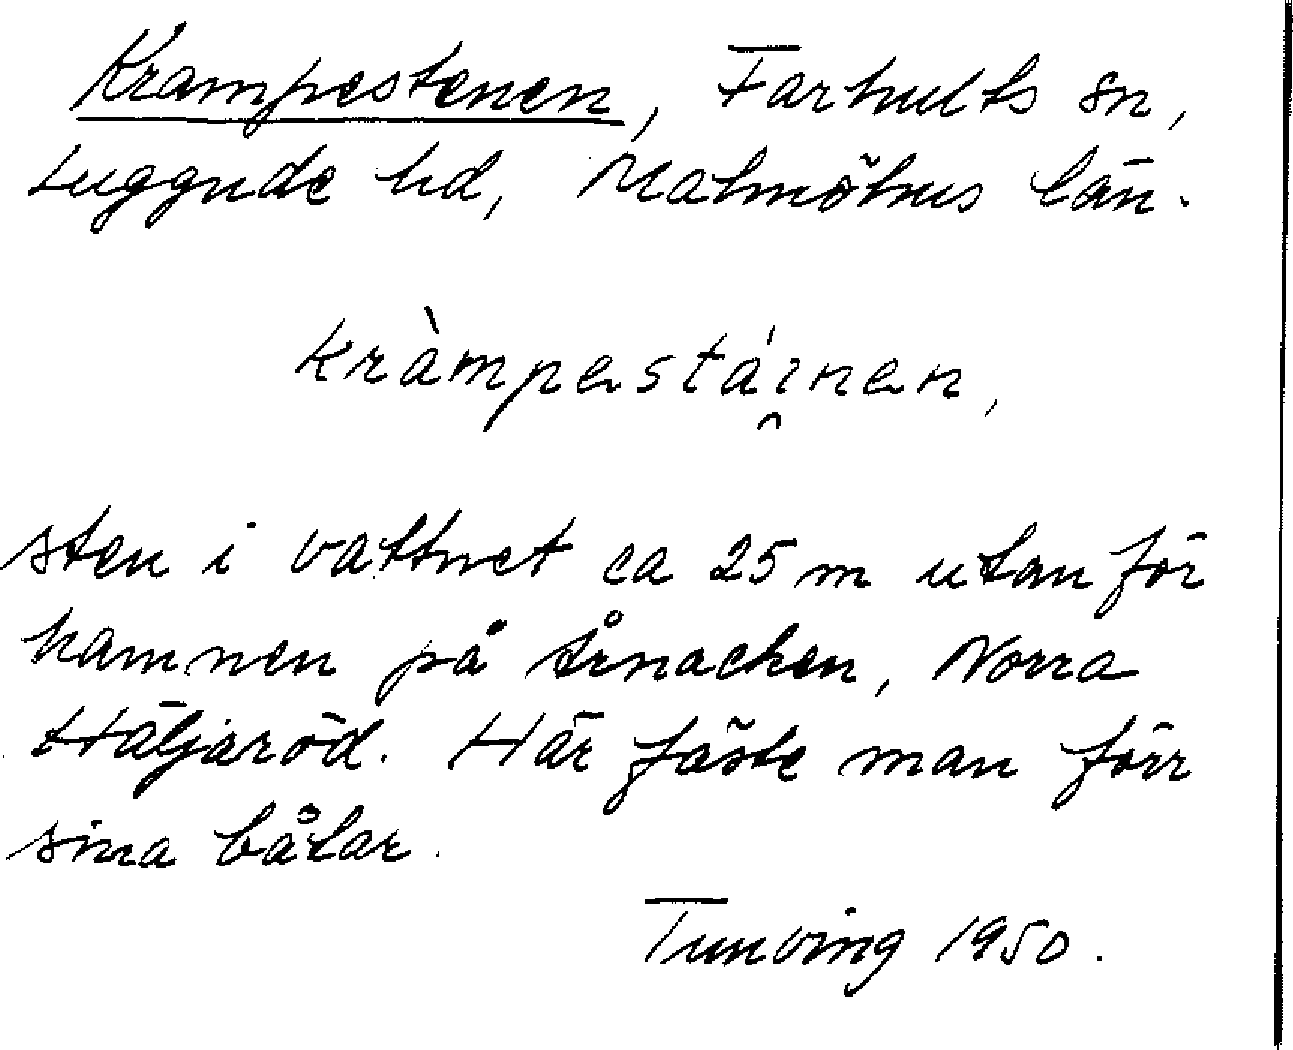 Krampestenen, Farhults sn,
Luggude hd, Malmöhus län.
kràmpestáinen,
sten i vattnet ca 25 m utanför
hamnen på Årnacken, Norra
Häljaröd. Här fäste man förr
sina båtar.
Tunving 1950.